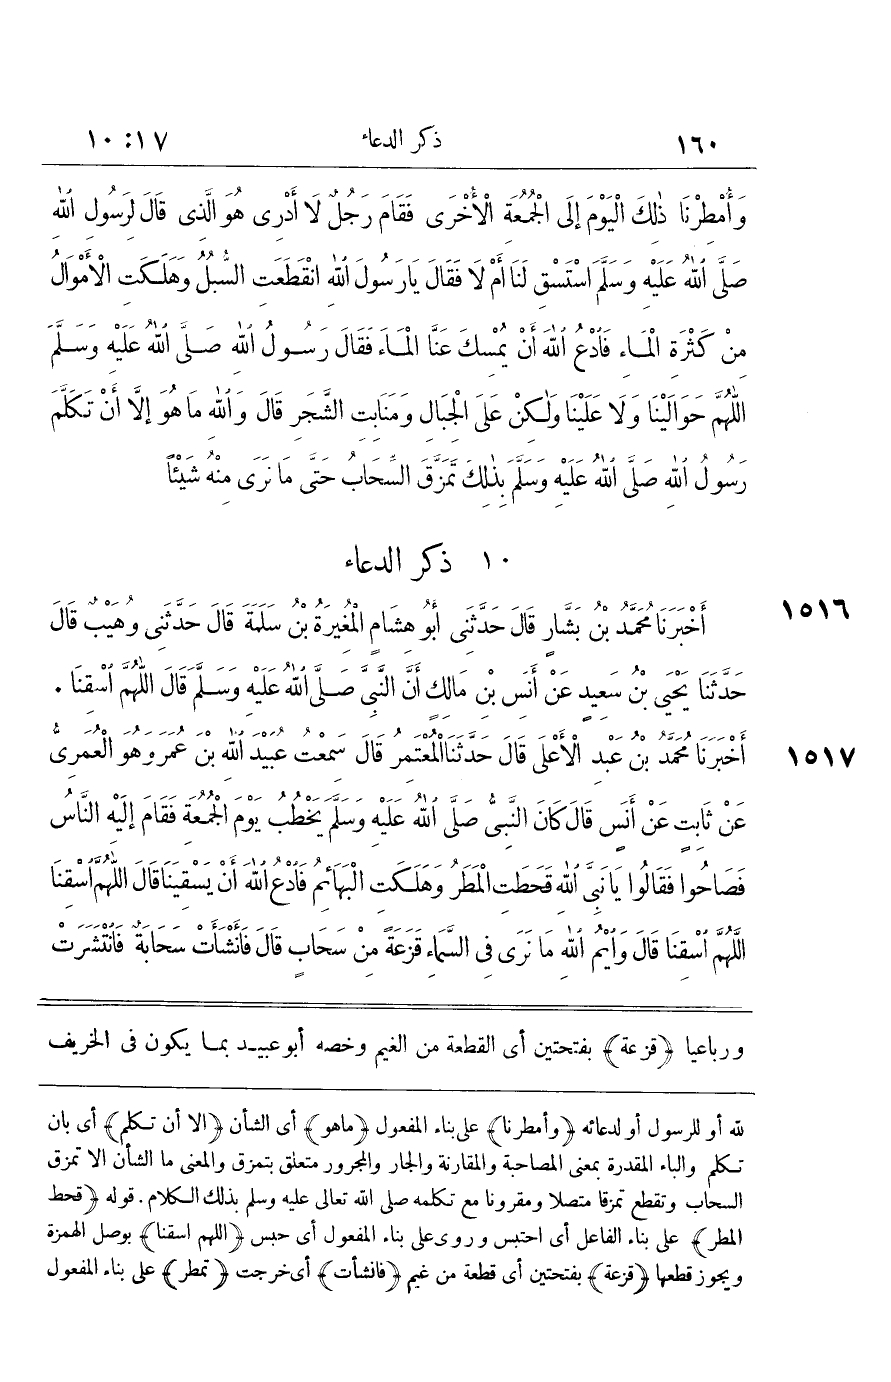 ١٦٠ ذكر الدعاء ١٧ : ١٠
وَأُمْطِرْنَا ذٰلِكَ الْيَوْمَ إِلَى الْجُمُعَةِ الْأُخْرَى فَقَامَ رَجُلٌ لَا أَدْرِى هُوَ الَّذِى قَالَ لِرَسُولِ اللهِ
صَلَّى اللهُ عَلَيْهِ وَسَلَّمَ اسْتَسْقِ لَنَا أَمْ لَا فَقَالَ يَارَسُولَ اللهِ انْقَطَعَتِ السُّبُلُ وَهَلَكَتِ الْأَمْوَالُ
مِنْ كَثْرَةِ الْمَاءِ فَادْعُ اللهَ أَنْ يُمْسِكَ عَنَّا الْمَاءَ فَقَالَ رَسُولُ اللهِ صَلَّى اللهُ عَلَيْهِ وَسَلَّمَ
اللّٰهُمَّ حَوَالَيْنَا وَلَا عَلَيْنَا وَلٰكِنْ عَلَى الْجِبَالِ وَمَنَابِتِ الشَّجَرِ قَالَ وَاللهِ مَاهُوَ إِلَّا أَنْ تَكَلَّمَ
رَسُولُ اللهِ صَلَّى اللهُ عَلَيْهِ وَسَلَّمَ بِذٰلِكَ تَمَزَّقَ السَّحَابُ حَتَّى مَا نَرَى مِنْهُ شَيْئًا
١٠ ذكر الدعاء
١٥١٦ أَخْبَرَنَا مُحَمَّدُ بْنُ بَشَّارٍ قَالَ حَدَّثَنِى أَبُو هِشَامٍ الْمُغِيرَةُ بْنُ سَلَمَةَ قَالَ حَدَّثَنِى وُهَيْبٌ قَالَ
حَدَّثَنَا يَحْيَى بْنُ سَعِيدٍ عَنْ أَنَسِ بْنِ مَالِكٍ أَنَّ النَّبِىَّ صَلَّى اللهُ عَلَيْهِ وَسَلَّمَ قَالَ اللّٰهُمَّ اسْقِنَا .
١٥١٧ أَخْبَرَنَا مُحَمَّدُ بْنُ عَبْدِ الْأَعْلَى قَالَ حَدَّثَنَا الْمُعْتَمِرُ قَالَ سَمِعْتُ عُبَيْدَ اللهِ بْنَ عُمَرَ وَهُوَ الْعُمَرِىُّ
عَنْ ثَابِتٍ عَنْ أَنَسٍ قَالَ كَانَ النَّبِىُّ صَلَّى اللهُ عَلَيْهِ وَسَلَّمَ يَخْطُبُ يَوْمَ الْجُمُعَةِ فَقَامَ إِلَيْهِ النَّاسُ
فَصَاحُوا فَقَالُوا يَانَبِىَّ اللهِ قَحَطَتِ الْمَطَرُ وَهَلَكَتِ الْبَهَائِمُ فَادْعُ اللهَ أَنْ يَسْقِيَنَا قَالَ اللّٰهُمَّ اسْقِنَا
اللّٰهُمَّ اسْقِنَا قَالَ وَايْمُ اللهِ مَا نَرَى فِى السَّمَاءِ قَزَعَةً مِنْ سَحَابٍ قَالَ فَأَنْشَأَتْ سَحَابَةٌ فَانْتَشَرَتْ
ورباعيا ﴿قزعة﴾ بفتحتين أى القطعة من الغيم وخصه أبو عبيد بما يكون فى الخريف
لله أو للرسول أو لدعائه ﴿وأمطرنا﴾ على بناء المفعول ﴿ماهو﴾ أى الشأن ﴿الا أن تكلم﴾ أى بان
تكلم والباء المقدرة بمعنى المصاحبة والمقارنة والجار والمجرور متعلق بتمزق والمعنى ما الشأن الا تمزق
السحاب وتقطع تمزقا متصلا ومقرونا مع تكلمه صلى الله تعالى عليه وسلم بذلك الكلام . قوله ﴿قحط
المطر﴾ على بناء الفاعل أى احتبس وروى على بناء المفعول أى حبس ﴿اللهم اسقنا﴾ بوصل الهمزة
ويجوز قطعها ﴿قزعة﴾ بفتحتين أى قطعة من غيم ﴿فانشأت﴾ أى خرجت ﴿تمطر﴾ على بناء المفعول